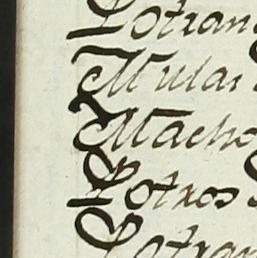 Potran
Mulas
Macho
Potros
Potran